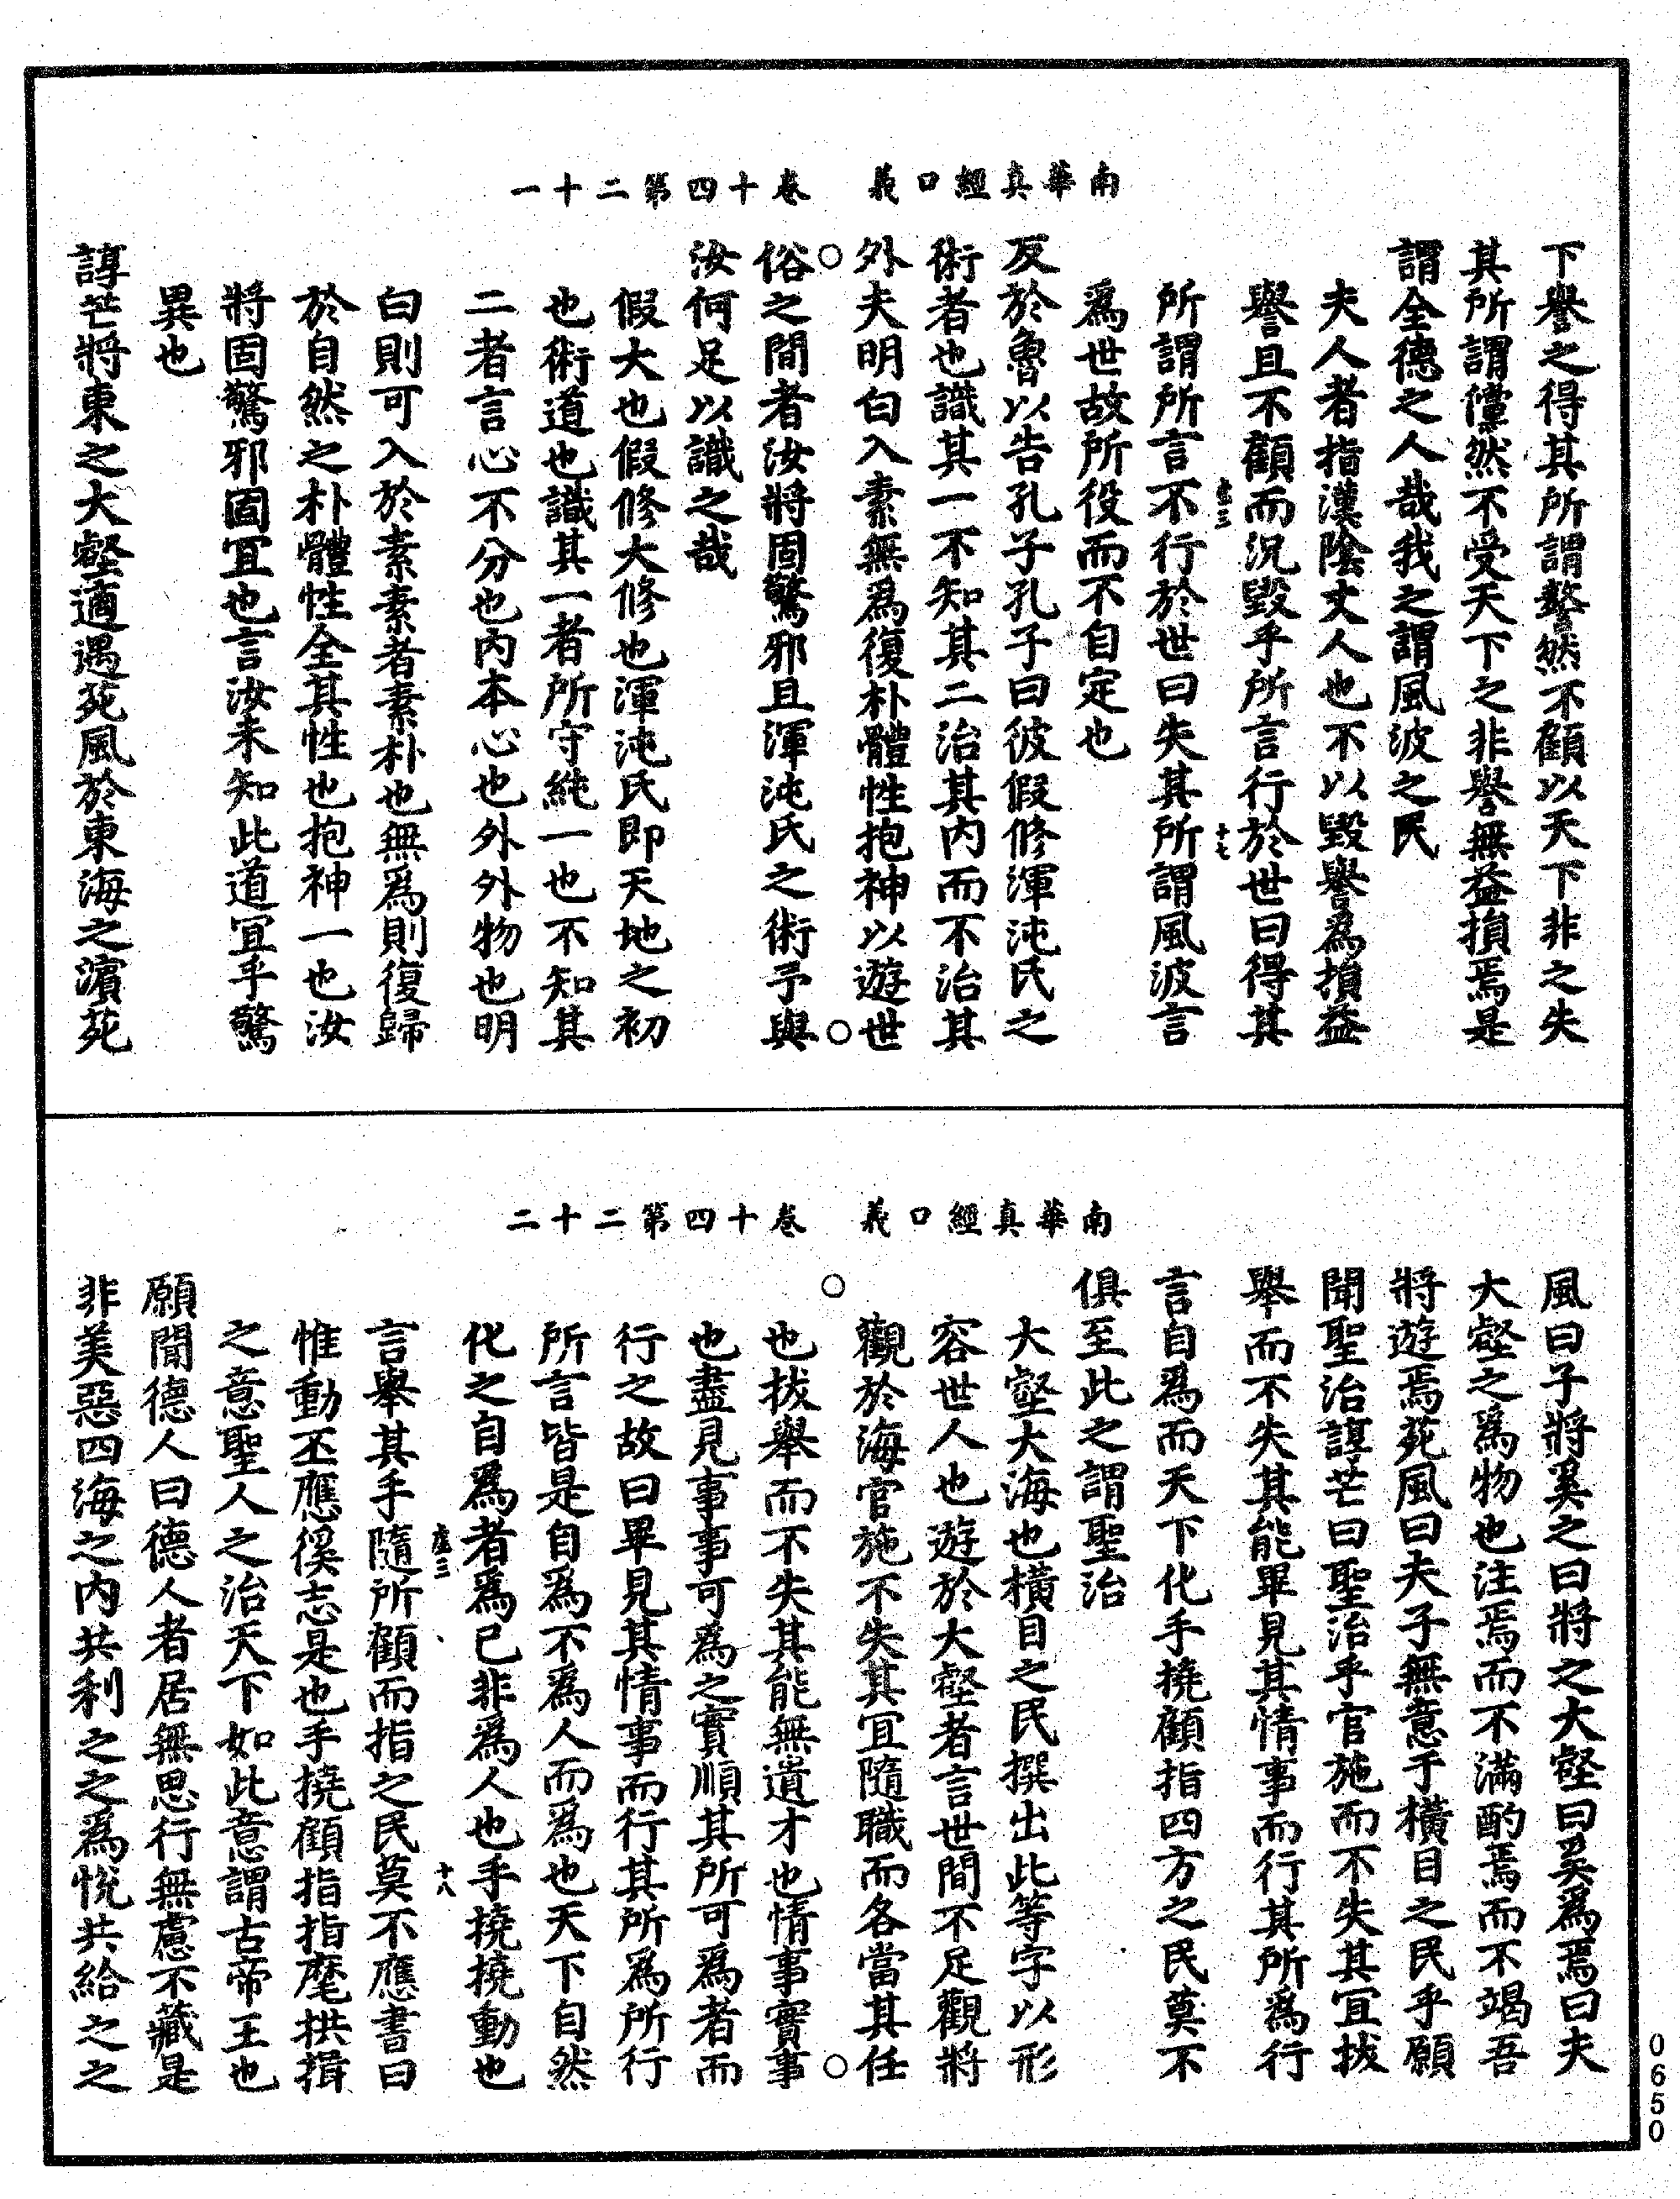 南華真經口義　卷十四第二十一
下譽之得其所謂謷然不顧以天下非之失
其所謂儻然不受天下之非譽無益損焉是
謂全德之人哉我之謂風波之民
夫人者指漢陰丈人也不以毀譽爲損益
譽且不顧而況毀乎所言行於世曰得其
虛三　十七
所謂所言不行於世曰失其所謂風波言
爲世故所役而不自定也
反於魯以告孔子孔子曰彼假修渾沌氏之
術者也識其一不知其二治其内而不治其
外夫明白入素無爲復朴體性抱神以遊世
○　○
俗之間者汝將固驚邪且渾沌氏之術予與
汝何足以識之哉
假大也假修大修也渾沌氏即天地之初
也術道也識其一者所守純一也不知其
二者言心不分也内本心也外外物也明
白則可入於素素者素朴也無爲則復歸
於自然之朴體性全其性也抱神一也汝
將固驚邪固冝也言汝未知此道冝乎驚
異也
諄芒將東之大壑適遇苑風於東海之濱苑
南華真經口義　卷十四第二十二
風曰子將奚之曰將之大壑曰奚爲焉曰夫
大壑之爲物也注焉而不滿酌焉而不竭吾
將遊焉苑風曰夫子無意于橫目之民乎願
聞聖治諄芒曰聖治乎官施而不失其冝拔
舉而不失其能畢見其情事而行其所爲行
言自爲而天下化手撓顧指四方之民莫不
俱至此之謂聖治
大壑大海也橫目之民撰出此等字以形
容世人也遊於大壑者言世間不足觀將
觀於海官施不失其冝隨職而各當其任
○　○
也拔舉而不失其能無遺才也情事實事
也盡見事事可爲之實順其所可爲者而
行之故曰畢見其情事而行其所爲所行
所言皆是自爲不爲人而爲也天下自然
化之自爲者爲己非爲人也手撓撓動也
虛三　十八
言舉其手隨所顧而指之民莫不應書曰
惟動丕應徯志是也手撓顧指指麾拱揖
之意聖人之治天下如此意謂古帝王也
願聞德人曰德人者居無思行無慮不藏是
非美惡四海之内共利之之爲悅共給之之
0650